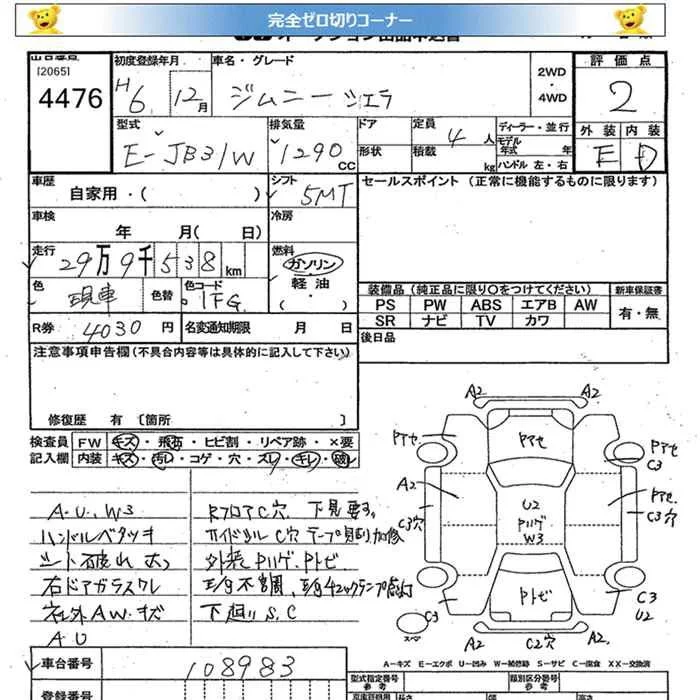 完全ゼロ切りコーナー
[2065]
4476
初度登録年月
H6 12月
車名・グレード
ジムニーシエラ
2WD
・
4WD
評価点
2
外装 内装
E D
型式
E-JB31W
排気量
1290 CC
ドア
形状
定員 4人
積載 kg
ディーラー・並行
モデル年式 年
ハンドル 左・右
車歴
自家用・( )
シフト
5MT
セールスポイント (正常に機能するものに限ります)
車検
年 月( 日)
冷房
走行
29万9千538km
燃料
ガソリン
軽油
・( )
色
現車
色替
色コード
1FG
装備品 (純正品に限り〇をつけてください)
新車保証書
PS PW ABS エアB AW
SR ナビ TV カワ
有・無
R券 4030円
名変通知期限 月 日
後日品
注意事項申告欄(不具合内容等は具体的に記入して下さい)
修復歴 有 〔箇所 〕
検査員
記入欄
FW キズ・飛石・ヒビ割・リペア跡・×要
内装 キズ・汚れ・コゲ・穴・スレ・キレ・破レ
A.U.W3
ハンドルベタツキ
シート破れ
右ドアガラスワレ
社外AW.キズ
A U
RフロアC穴 下見要す。
サイドシルC穴
外装Pハゲ.Pトビ
E/g不調、E/gチェックランプ点灯
下廻りS.C
A2 A2
Pアセ Pアセ Pアセ
C3
A2
C3穴
U2
Pハゲ
W3
Pアセ.
C3穴
C3
Pトビ
C3
U2
スペア
A2 C2穴 A2
A-キズ E-エクボ U-凹み W-補修跡 S-サビ C-腐食 XX-交換済
車台番号
108983
登録番号
型式指定番号
参考
類別区分番号
参考